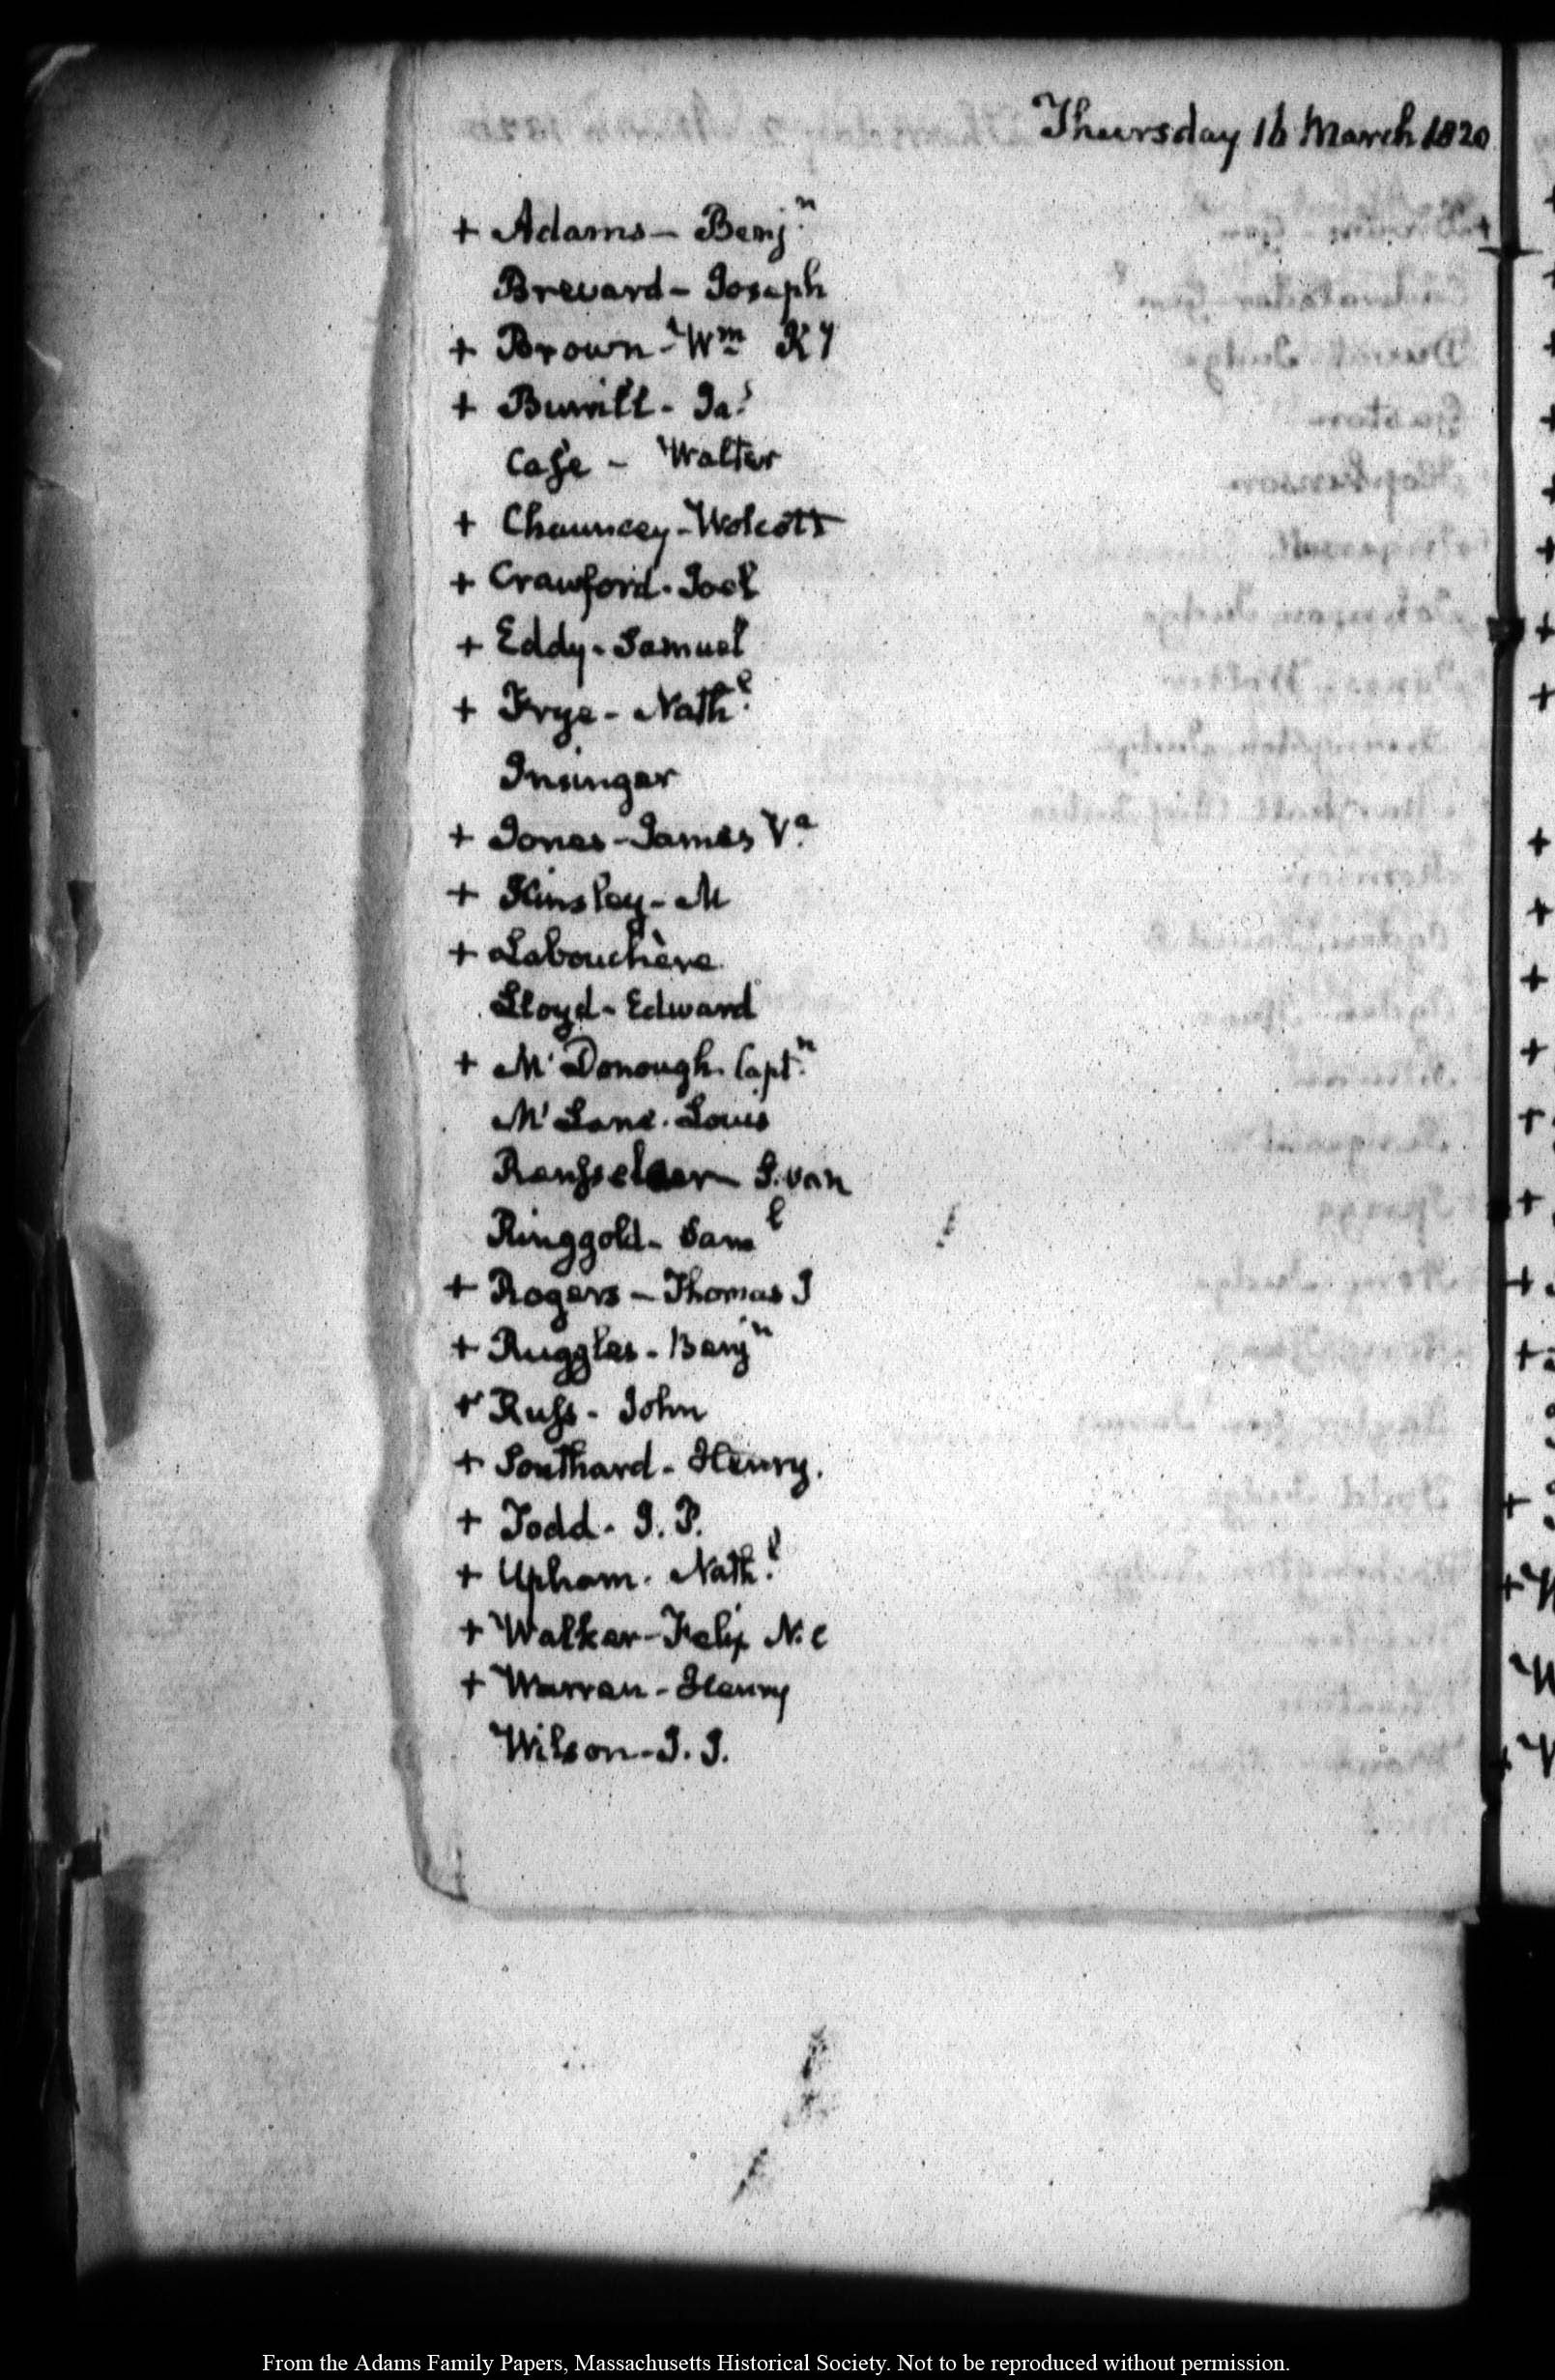 Thursday 16 March 1820
+ Adams — Benjn
Brevard - Joseph
+ Brown - Wm Ky
+ Burrill - Jas
Case - Walter
+ Chauncey - Wolcott
+ Crawford - Joel
+ Eddy - Samuel
+ Frye - Nathl
Insinger
+ Jones - James Va
+ Kinsley - M
+ Labouchère
Lloyd - Edward
+ M'Donough. Captn
M'Lane. Louis
Rensselaer S. van
Ringgold - Saml
+ Rogers — Thomas J
+ Ruggles - Benjn
+ Russ - John
+ Southard - Henry.
+ Todd - J. P.
+ Upham. Nathl
+ Walker - Felix N. C
+ Warren - Henry
Wilson - J. J.
From the Adams Family Papers, Massachusetts Historical Society. Not to be reproduced without permission.